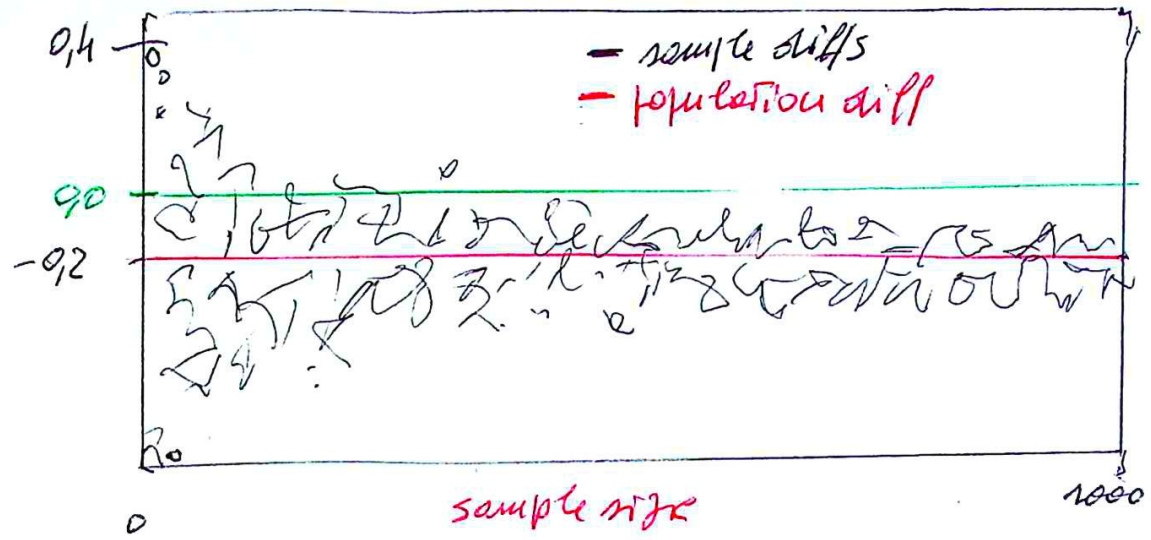 0,4
sample diffs
population diff
0,0
-0,2
0
sample size
1000